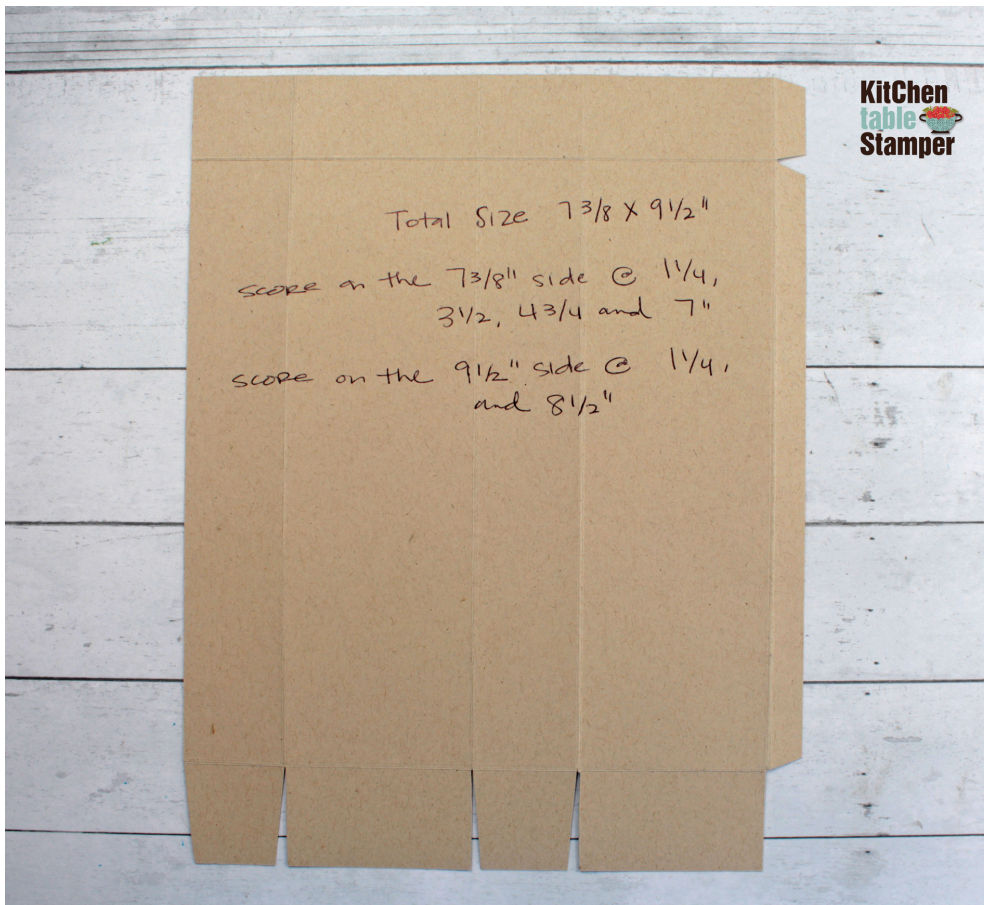 KitChen
table
Stamper
Total Size 7 3/8 X 9 1/2"
score on the 7 3/8" side @ 1 1/4,
3 1/2, 4 3/4 and 7"
score on the 9 1/2" side @ 1 1/4,
and 8 1/2"